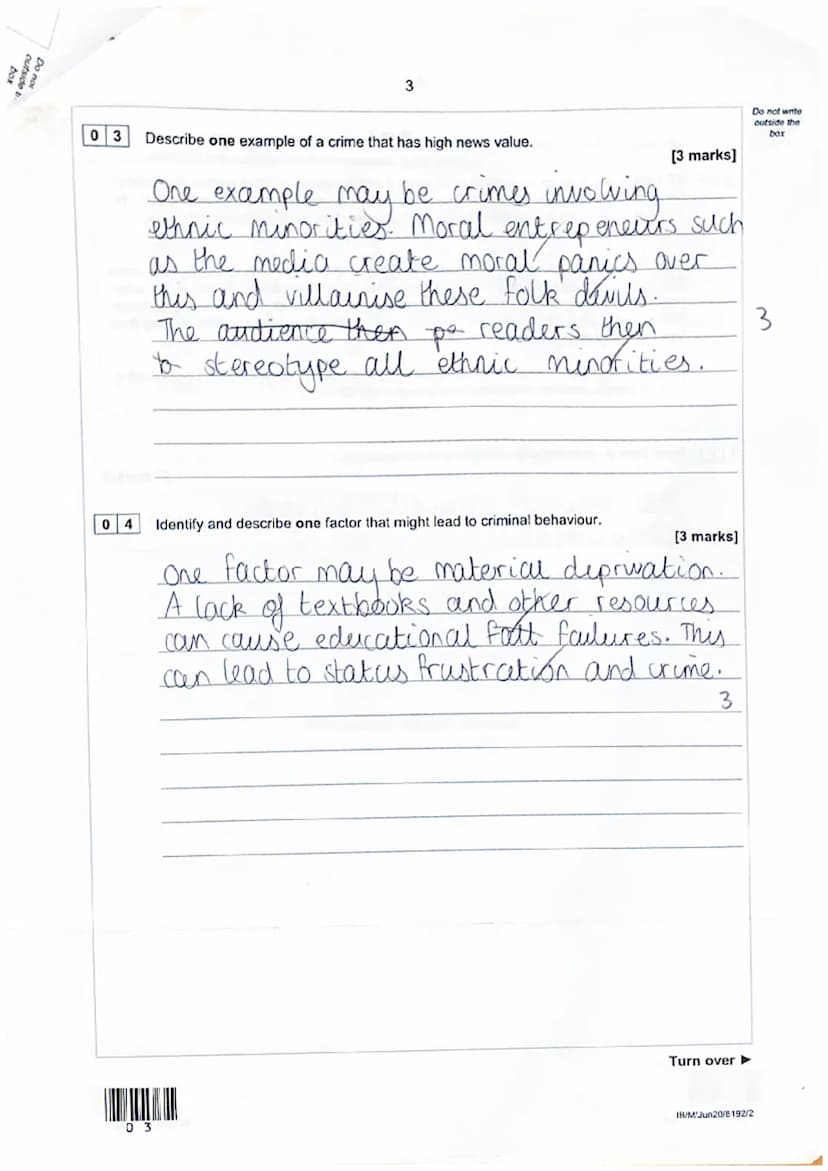 Do not
outside t
box
3
Do not write
outside the
box
0 3 Describe one example of a crime that has high news value.
[3 marks]
One example may be crimes involving
ethnic minorities. Moral entrepeneurs such
as the media create moral panics over
this and villainise these folk devils.
The audience then pe readers then
to stereotype all ethnic minorities.
3
0 4 Identify and describe one factor that might lead to criminal behaviour.
[3 marks]
One factor may be material deprivation.
A lack of textbooks and other resources
can cause educational failures. This
can lead to status frustration and crime.
3
Turn over ►
0 3
IB/M/Jun20/8192/2